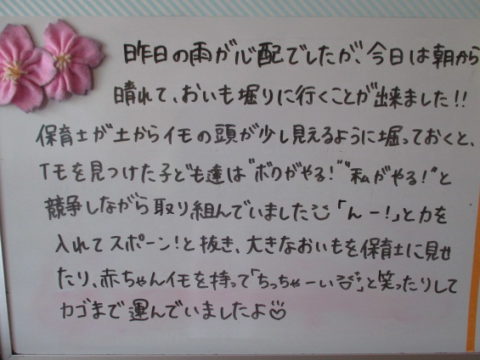 昨日の雨が心配でしたが、今日は朝から
晴れて、おいも堀りに行くことが出来ました!!
保育士が土からイモの頭が少し見えるように堀っておくと、
イモを見つけた子ども達は"ボクがやる!""私がやる!"と
競争しながら取り組んでいました 「んー!」と力を
入れてスポーン!と抜き、大きなおいもを保育士に見せ
たり、赤ちゃんイモを持って「ちっちゃーい」と笑ったりして
カゴまで運んでいましたよ